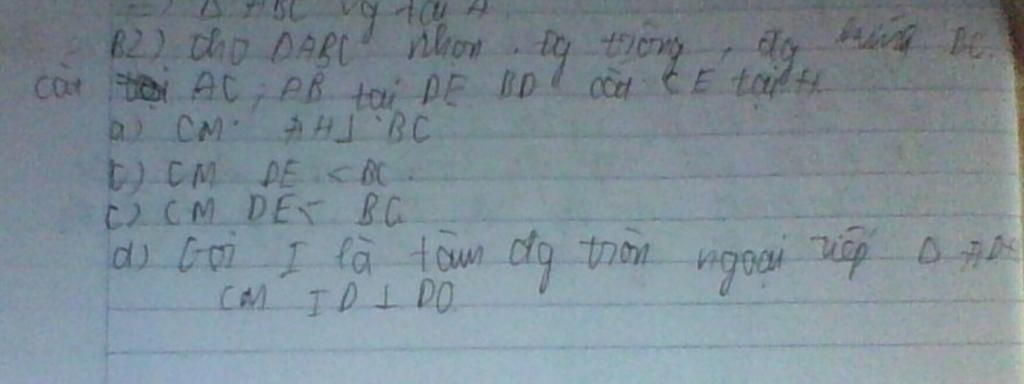 =) Δ ABC vg tại A
B2) Cho ΔABC nhọn. Đg tròn, đg kính BC
cắt AC, AB tại D E BD cắt CE tại H
a) CM AH ⊥ BC
b) CM DE < BC
c) CM DE < BC
d) Gọi I là tâm đg tròn ngoại tiếp Δ ADE
CM ID ⊥ DO